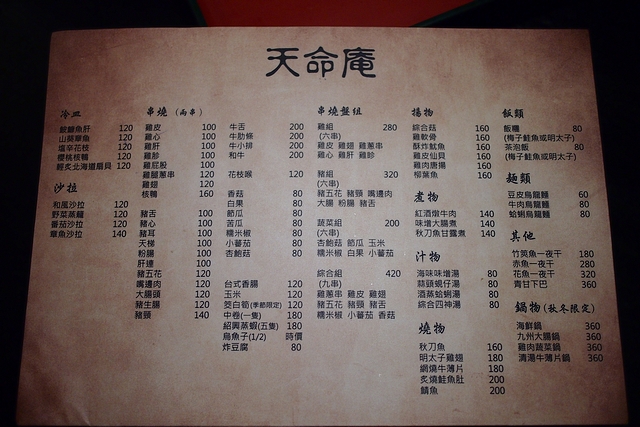 天命庵
冷皿
鮟鱇魚肝 120
山葵章魚 120
塩辛花枝 120
櫻桃核鴨 120
輕炙北海道扇貝 120
沙拉
和風沙拉 120
野菜蒸籠 120
番茄沙拉 120
章魚沙拉 140
串燒 (兩串)
雞皮 100
雞心 100
雞肝 100
雞胗 100
雞屁股 100
雞腿蔥串 120
雞翅 120
核鴨 160
豬舌 100
豬心 100
豬耳 100
天梯 100
粉腸 100
肝連 100
豬五花 120
嘴邊肉 120
大腸頭 120
豬生腸 120
豬頸 140
牛舌 200
牛肋條 200
牛小排 200
和牛 200
花枝喉 120
香菇 80
白果 80
節瓜 80
苦瓜 80
糯米椒 80
小蕃茄 80
杏鮑菇 80
台式香腸 120
玉米 120
筊白筍(季節限定) 120
中卷(一隻) 180
紹興蒸蝦(五隻) 180
烏魚子(1/2) 時價
炸豆腐 80
串燒盤組
雞組 280
(六串)
雞皮 雞翅 雞蔥串
雞心 雞肝 雞胗
豬組 320
(六串)
豬五花 豬頸 嘴邊肉
大腸 粉腸 豬舌
蔬菜組 200
(六串)
杏鮑菇 節瓜 玉米
糯米椒 白果 小蕃茄
綜合組 420
(九串)
雞蔥串 雞皮 雞翅
豬五花 豬頸 豬舌
糯米椒 小蕃茄 香菇
揚物
綜合菇 160
雞軟骨 160
酥炸魷魚 160
雞皮仙貝 160
雞肉唐揚 160
柳葉魚 160
煮物
紅酒燉牛肉 140
味增大腸煮 140
秋刀魚甘露煮 140
汁物
海味味增湯 80
蒜頭蜆仔湯 80
酒蒸蛤蜊湯 80
綜合四神湯 80
燒物
秋刀魚 160
明太子雞翅 180
網燒牛薄片 180
炙燒鮭魚肚 200
鯖魚 200
飯類
飯糰 80
(梅子鮭魚或明太子)
茶泡飯 80
(梅子鮭魚或明太子)
麵類
豆皮烏龍麵 60
牛肉烏龍麵 80
蛤蜊烏龍麵 80
其他
竹筴魚一夜干 180
赤魚一夜干 280
花魚一夜干 320
青甘下巴 360
鍋物 (秋冬限定)
海鮮鍋 360
九州大腸鍋 360
雞肉蔬菜鍋 360
清湯牛薄片鍋 360